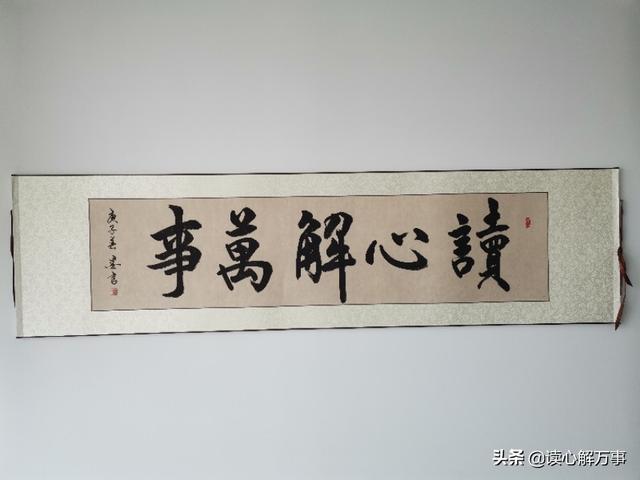 讀心解萬事
庚子美
头条 @读心解万事